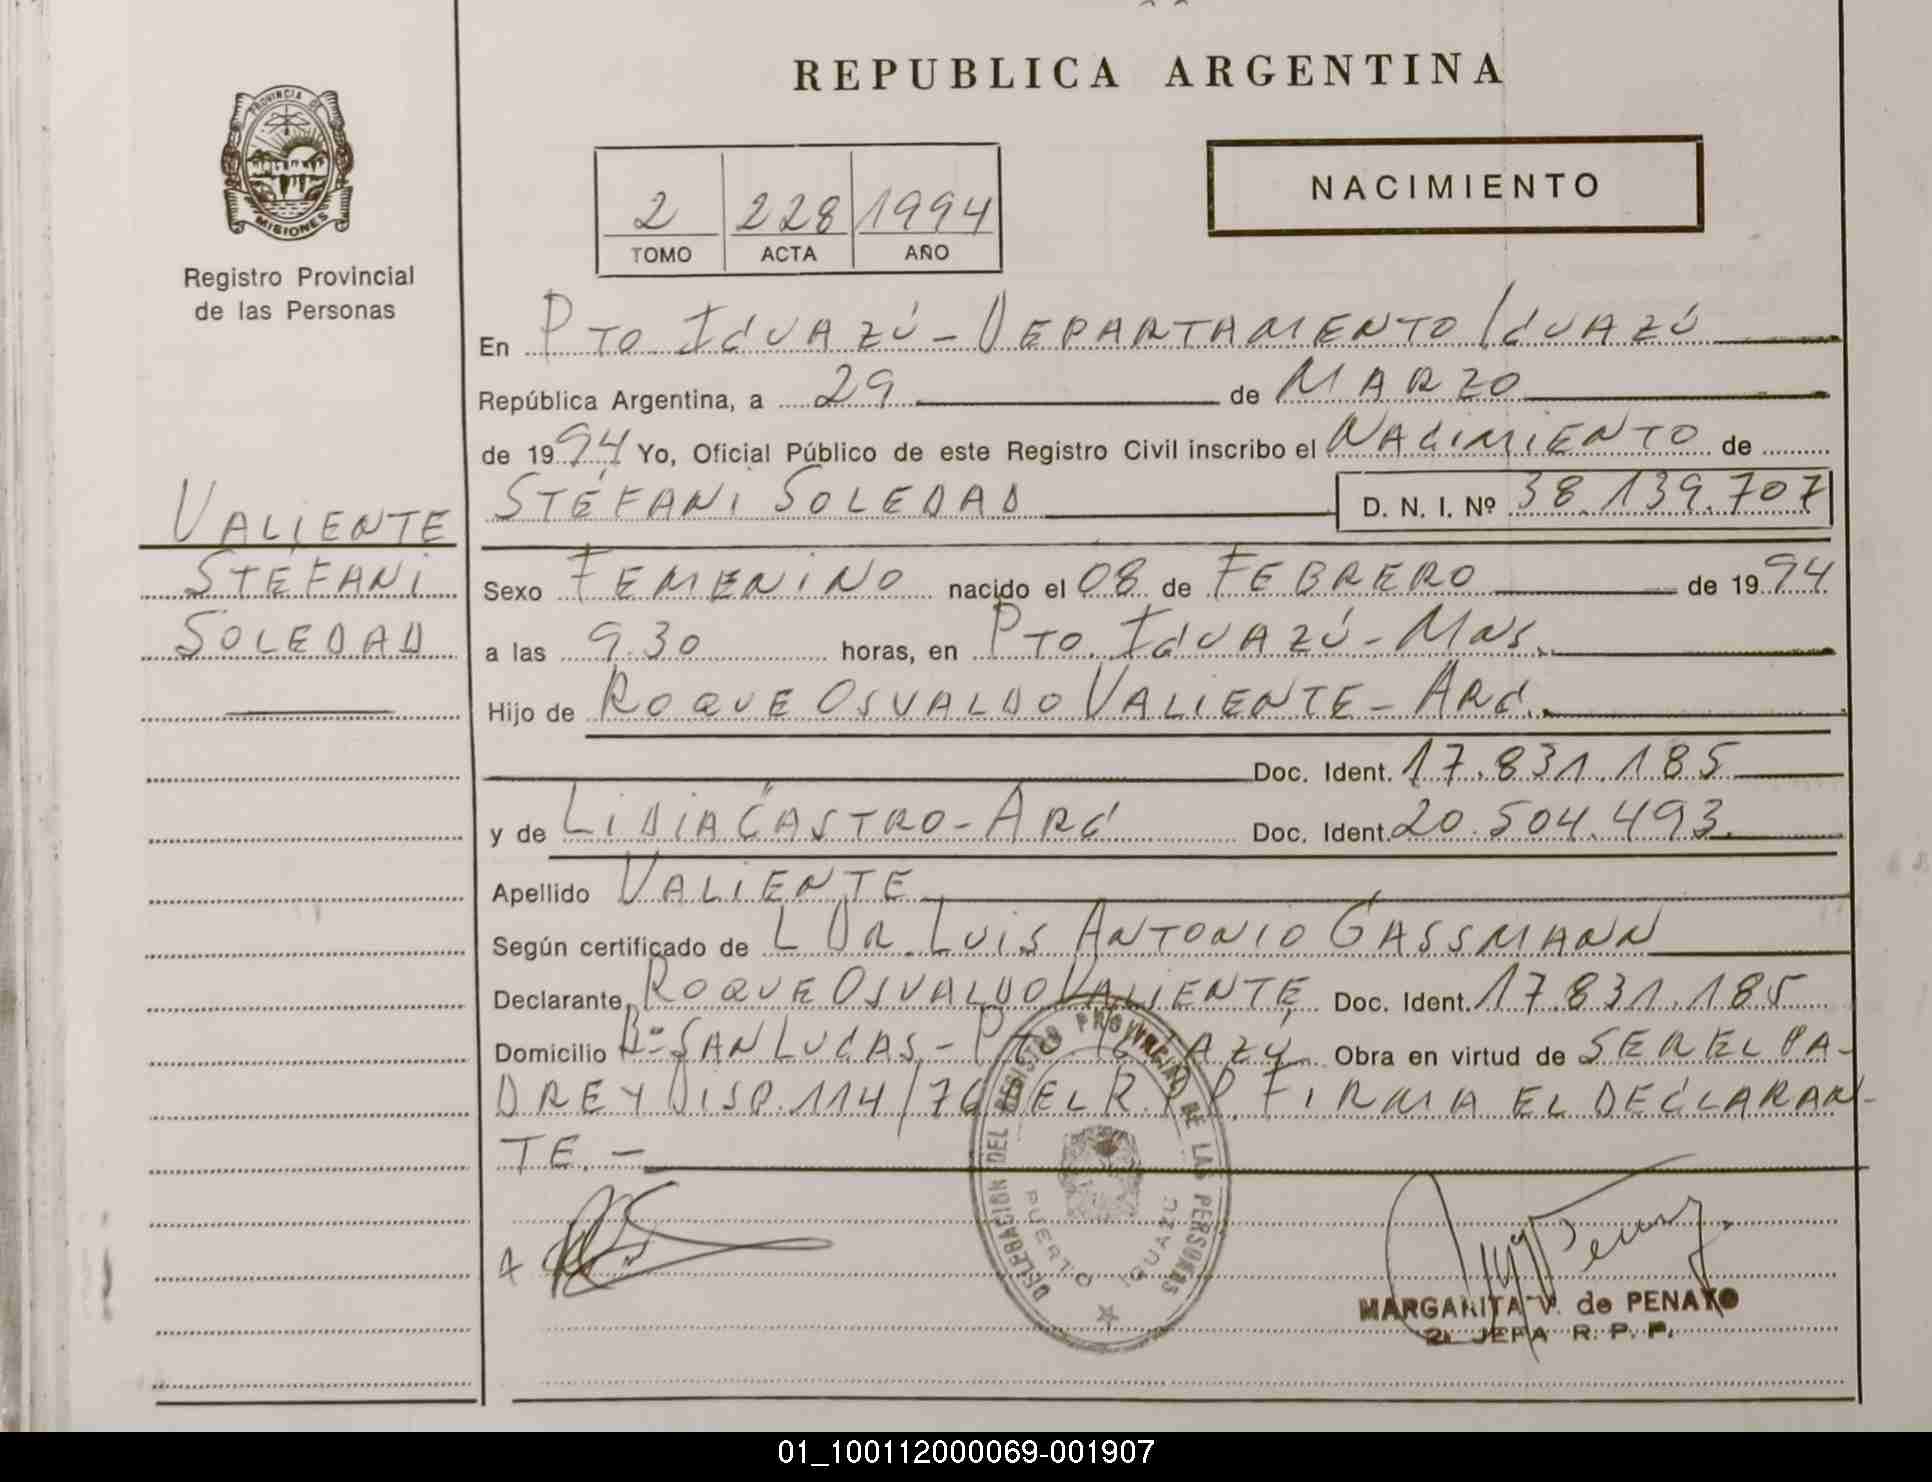 REPUBLICA ARGENTINA
PROVINCIA DE
MISIONES
Registro Provincial
de las Personas
2 228 1994
TOMO ACTA AÑO
NACIMIENTO
En PTO IGUAZÚ - DEPARTAMENTO IGUAZÚ
República Argentina, a 29 de MARZO
de 1994 Yo, Oficial Público de este Registro Civil inscribo el NACIMIENTO de
STÉFANI SOLEDAD D. N. I. Nº 38.139.707
VALIENTE
STÉFANI
SOLEDAD
Sexo FEMENINO nacido el 08 de FEBRERO de 1994
a las 9.30 horas, en PTO. IGUAZÚ - MNS.
Hijo de ROQUE OSVALDO VALIENTE - ARG.
Doc. Ident. 17.831.185
y de LIDIA CASTRO - ARG Doc. Ident. 20.504.493.
Apellido VALIENTE
Según certificado de L DR. LUIS ANTONIO GASSMANN
Declarante ROQUE OSVALDO VALIENTE, Doc. Ident. 17.831.185
Domicilio Bº SAN LUCAS - PTO IGUAZÚ Obra en virtud de SER EL PA-
DRE Y DISP. 114/76 DEL R.P.P. FIRMA EL DECLARAN-
TE. -
DELEGACION DEL REGISTRO PROVINCIAL DE LAS PERSONAS
PUERTO IGUAZU
MARGARITA V. de PENAYO
2. JEFA R. P. P.
01_100112000069-001907